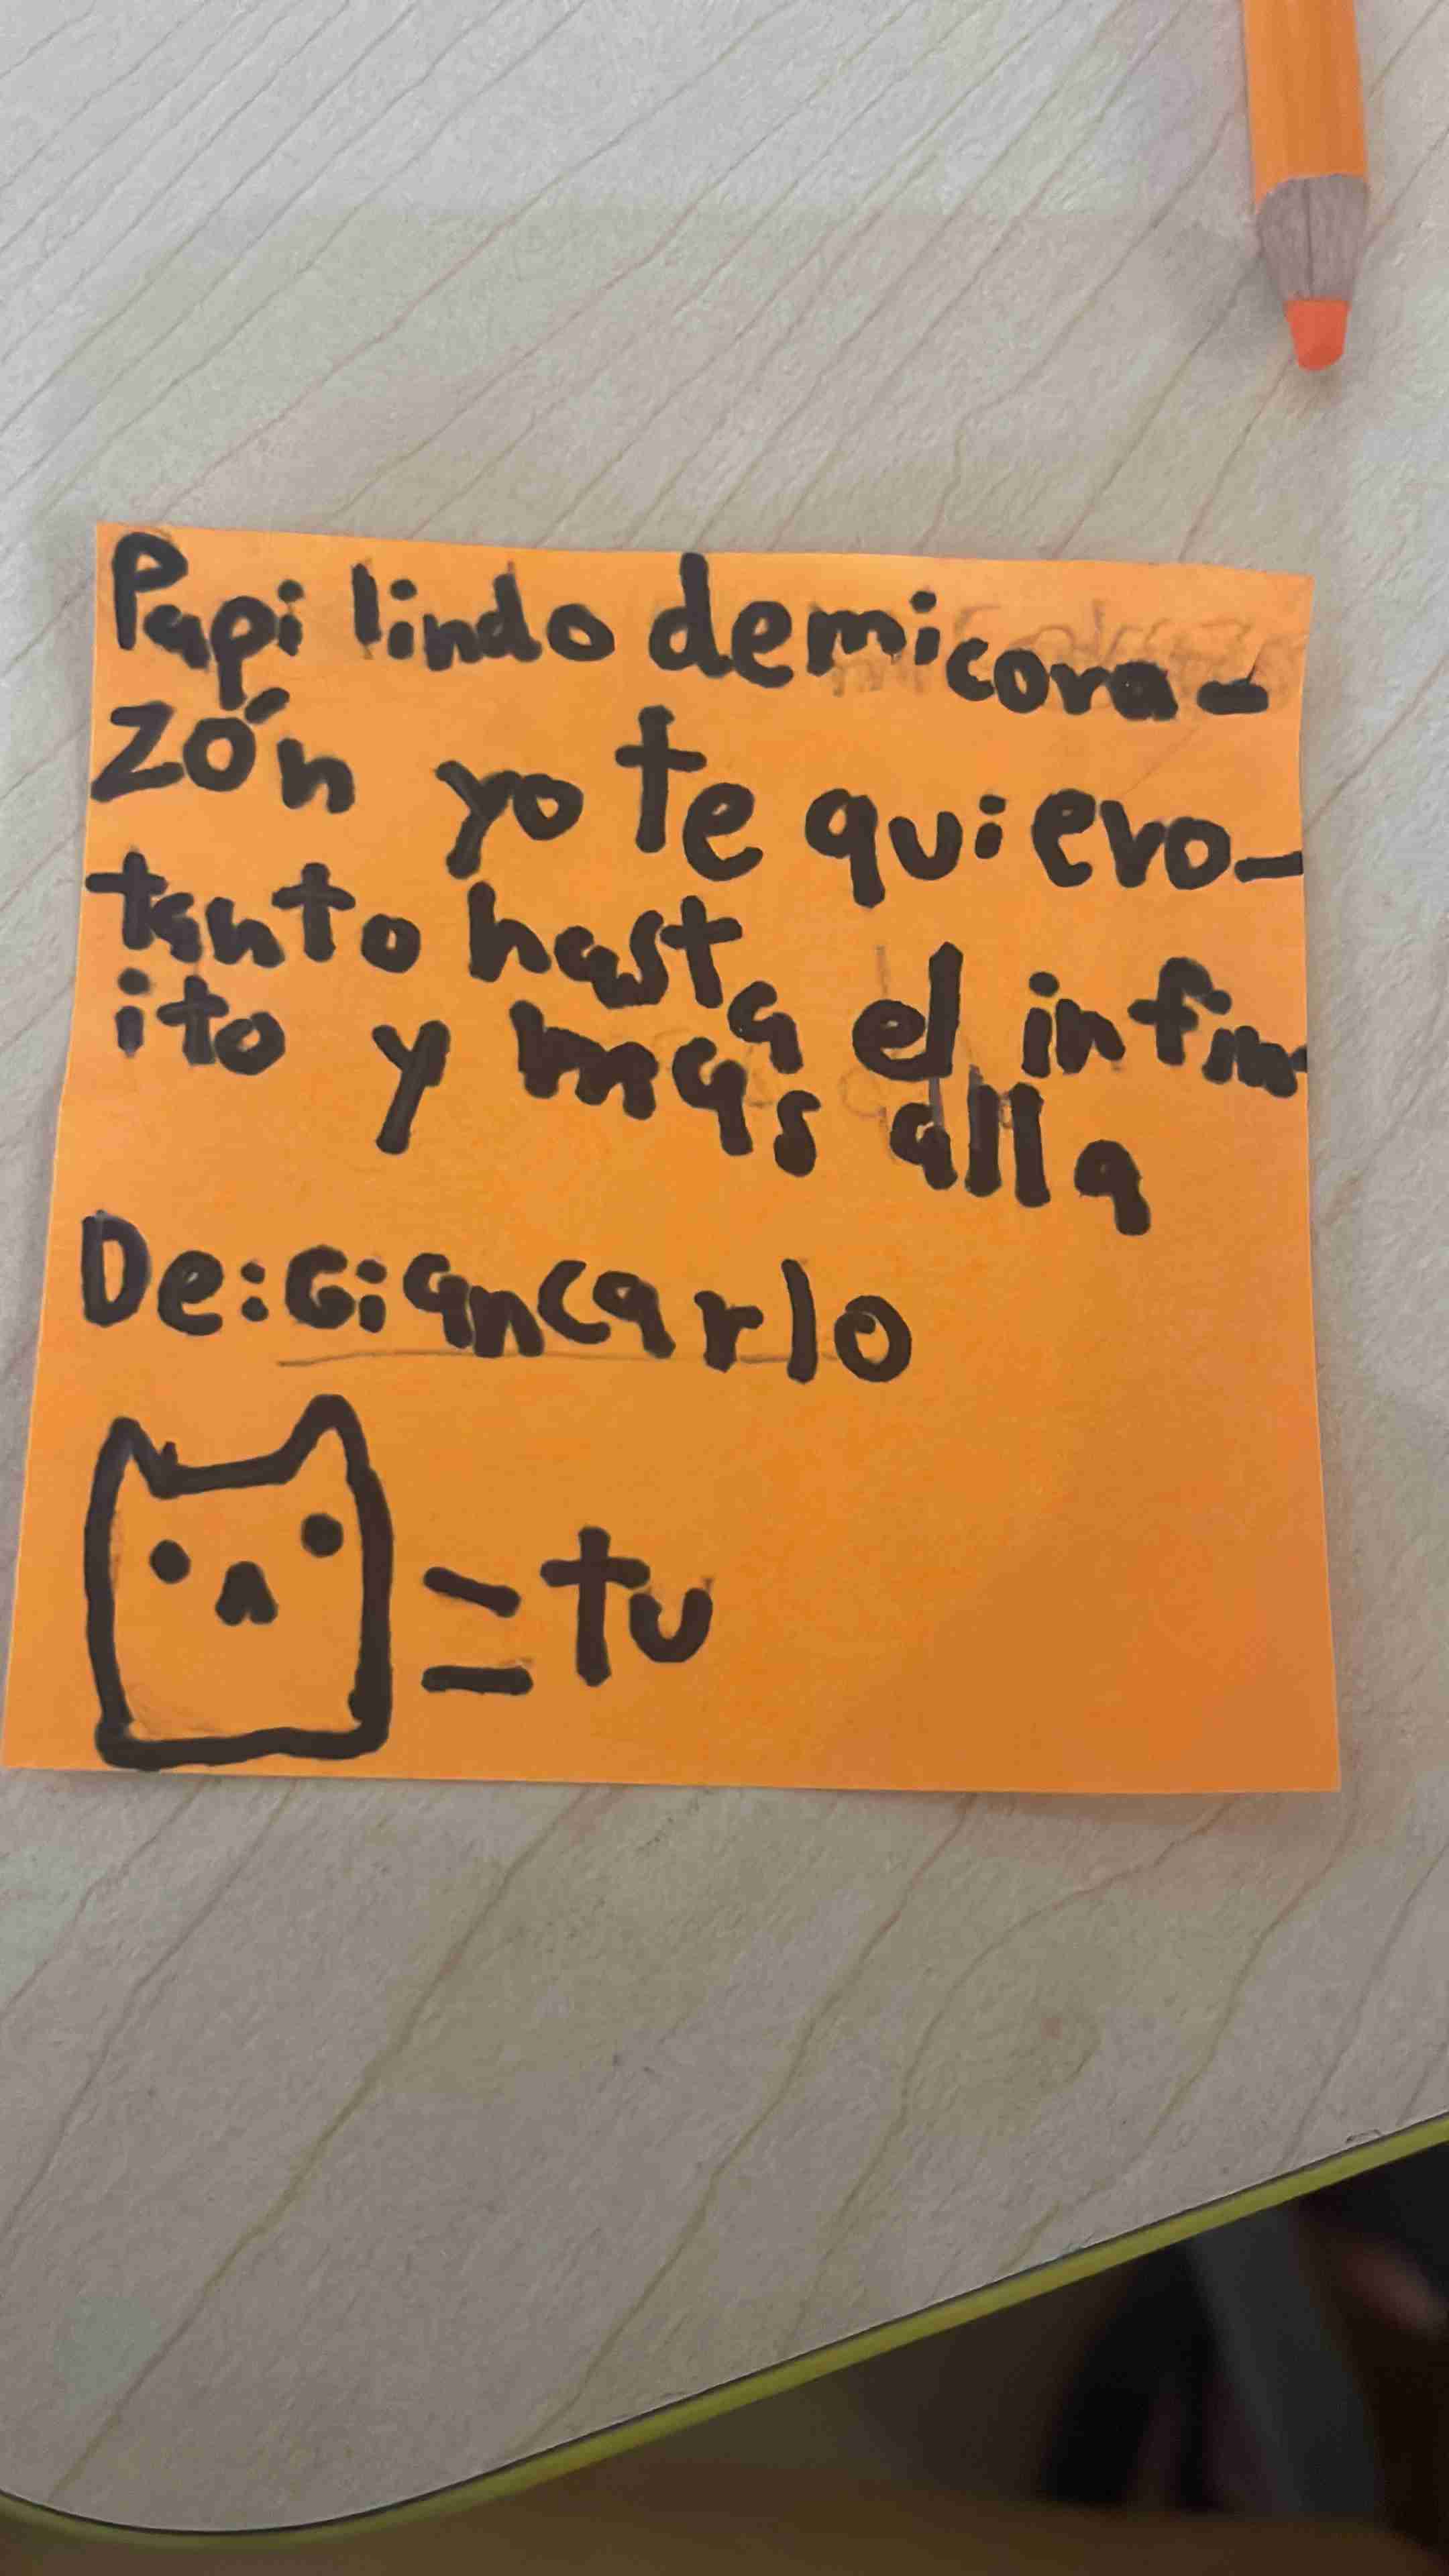 Papi lindo demicora-
zón yo te quiero-
tanto hasta el infin-
ito y mas alla
De: Giancarlo
= tu